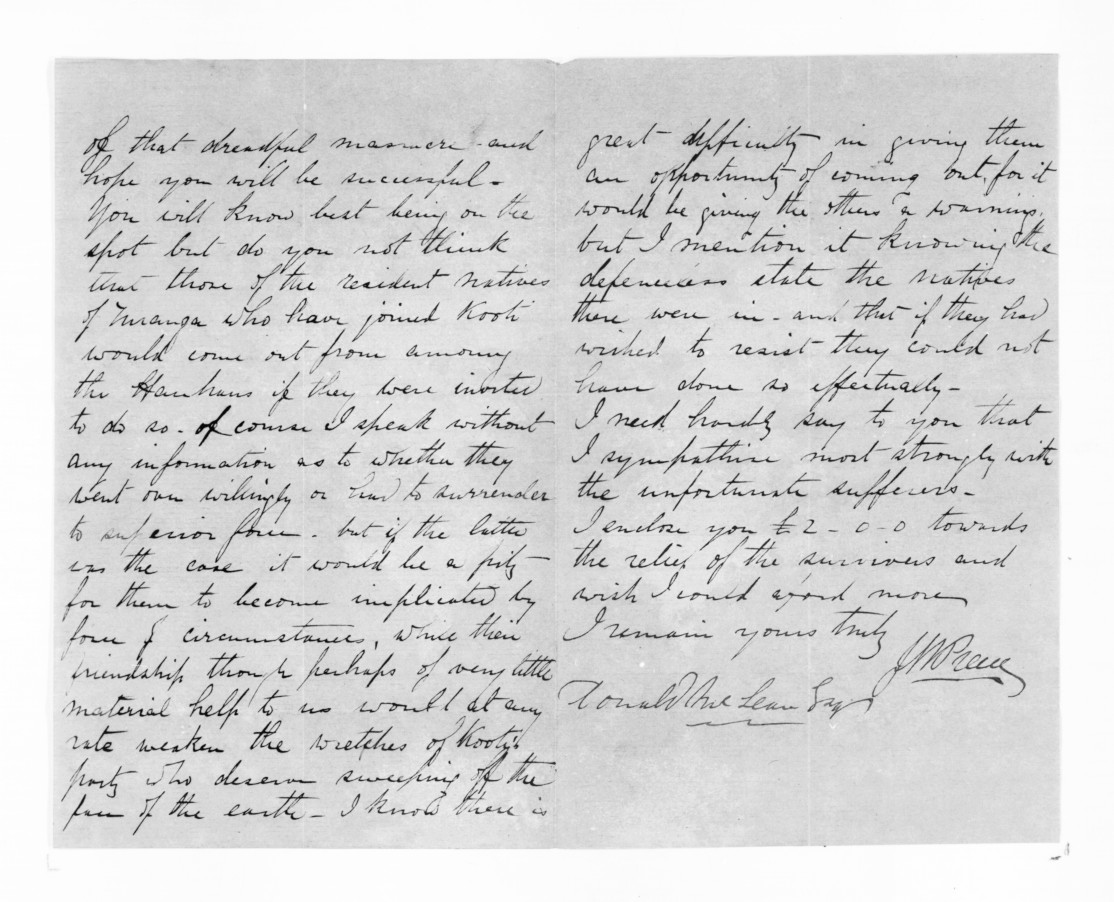 of that dreadful massacre and
hope you will be successful -
You will know best being on the
spot but do you not think
that those of the resident natives
of Turanga who have joined Kooti
would come out from among
the Hauhaus if they were invited
to do so - of course I speak without
any information as to whether they
went over willingly or had to surrender
to superior force - but if the latter
was the case it would be a pity
for them to become implicated by
force of circumstances, while their
friendship though perhaps of very little
material help to us would at any
rate weaken the wretches of Kooti's
party who deserve sweeping off the
face of the earth - I know there is
great difficulty in giving them
an opportunity of coming out, for it
would be giving the others a warning.
but I mention it knowing the
defenceless state the natives
there were in - and that if they had
wished to resist they could not
have done so effectually -
I need hardly say to you that
I sympathise most strongly with
the unfortunate sufferers -
I enclose you £2 - 0 - 0 towards
the relief of the survivors and
wish I could afford more
I remain yours truly
J W Preece
Donald McLean Esq